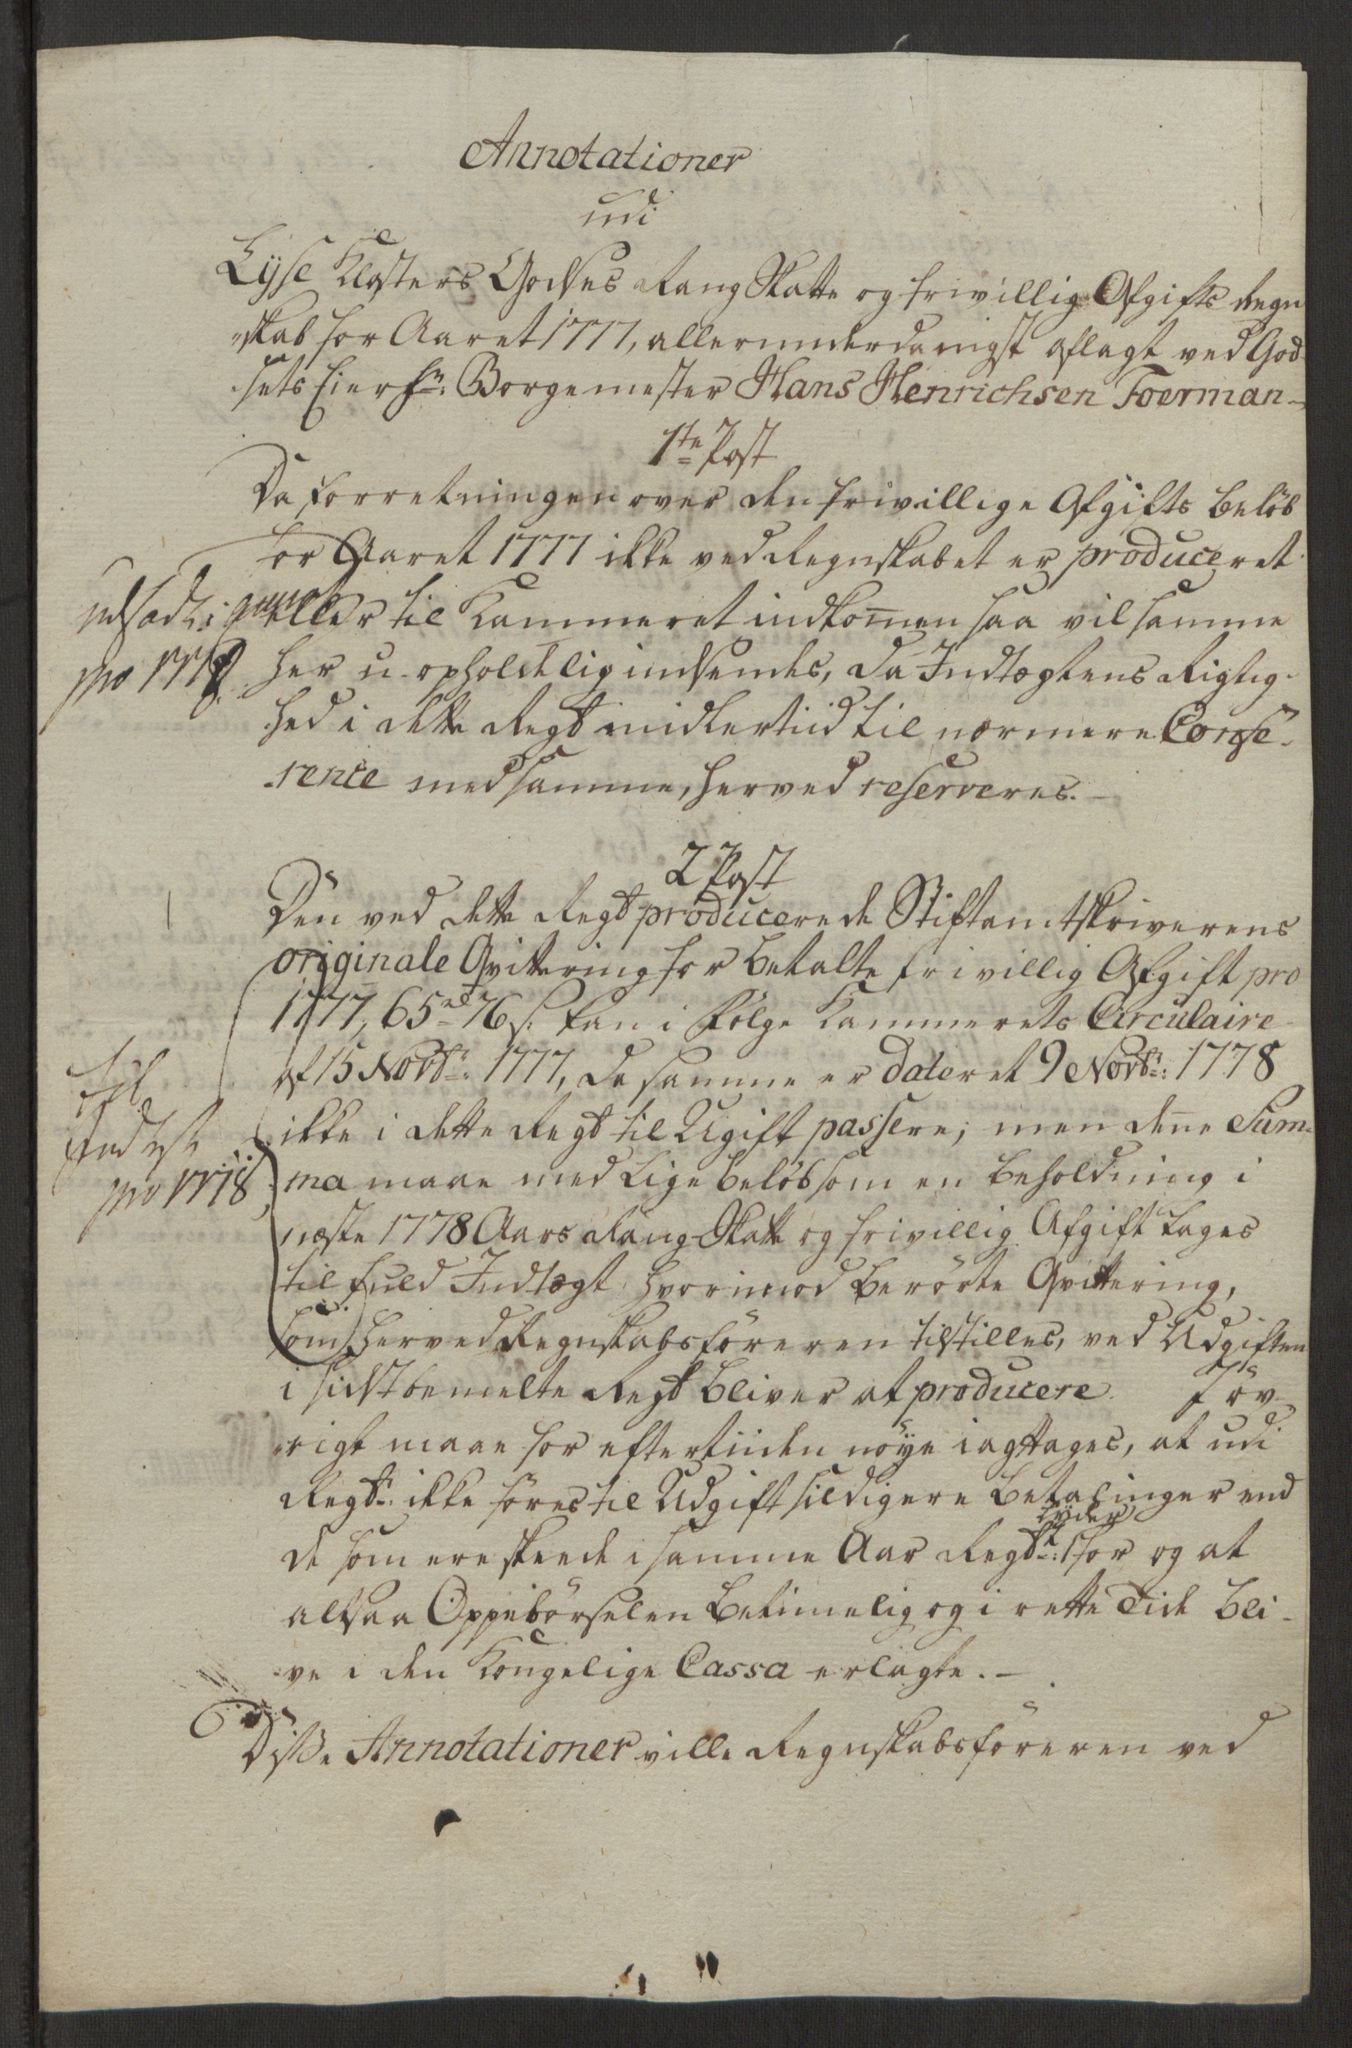 Annotationer
udi
Lyse Klosters Godses Rang Skatte og frivillig Afgifts Regn
skab for Aaret 1777, allerunderdanigst aflagt ved God-
sets Eier Hr: Borgemester Hans Henrichsen Foerman-
1te Post
Da forretningen over den frivillige Afgifts beløb
for Aaret 1777 ikke ved Regnskabet er produceret
eller til Kammeret indkomen saa vil samme
her u-opholdelig indsendes, da Indtægtens Rigtig-
hed i dette Regsb midlertiid til nærmere Confe-
rence med samme, herved reserveres.-
udsadt:
pro 1778
2 Post
Den ved dette Regsb producerede Stiftamtskriverens
originale Qvittering for betalte frivillig Afgift pro
1777, 65 rd 76 s: kan i Følge Kammerets Circulaire
af 15 Novbr: 1777, da samme er dateret 9 Novbr: 1778
ikke i dette Regsb til Ugift passere; men dene Sum-
ma maae med Lige beløb som en beholdning i
næste 1778 Aars Rang-Skatte og frivillig Afgift tages
til fuld Indtægt hvorimod berørte Qvittering,
som herved Regnskabsføreren tilstilles, ved Udgiften
i sidstbemelte Regsb bliver at producere. I øv-
rigt maae for eftertiiden nøye iagttages, at udi
Regsbr: ikke føres til Udgift sildigere Betalinger end
de som ere skeede i samme Aar Regsbr: lyder for og at
altsaa Oppebørselen betimelig og i rette Tide bli-
ve i den Kongelige Cassa erlagte.-
Indtægt
pro 1778
Disse Annotationer ville Regnskabsføreren ved